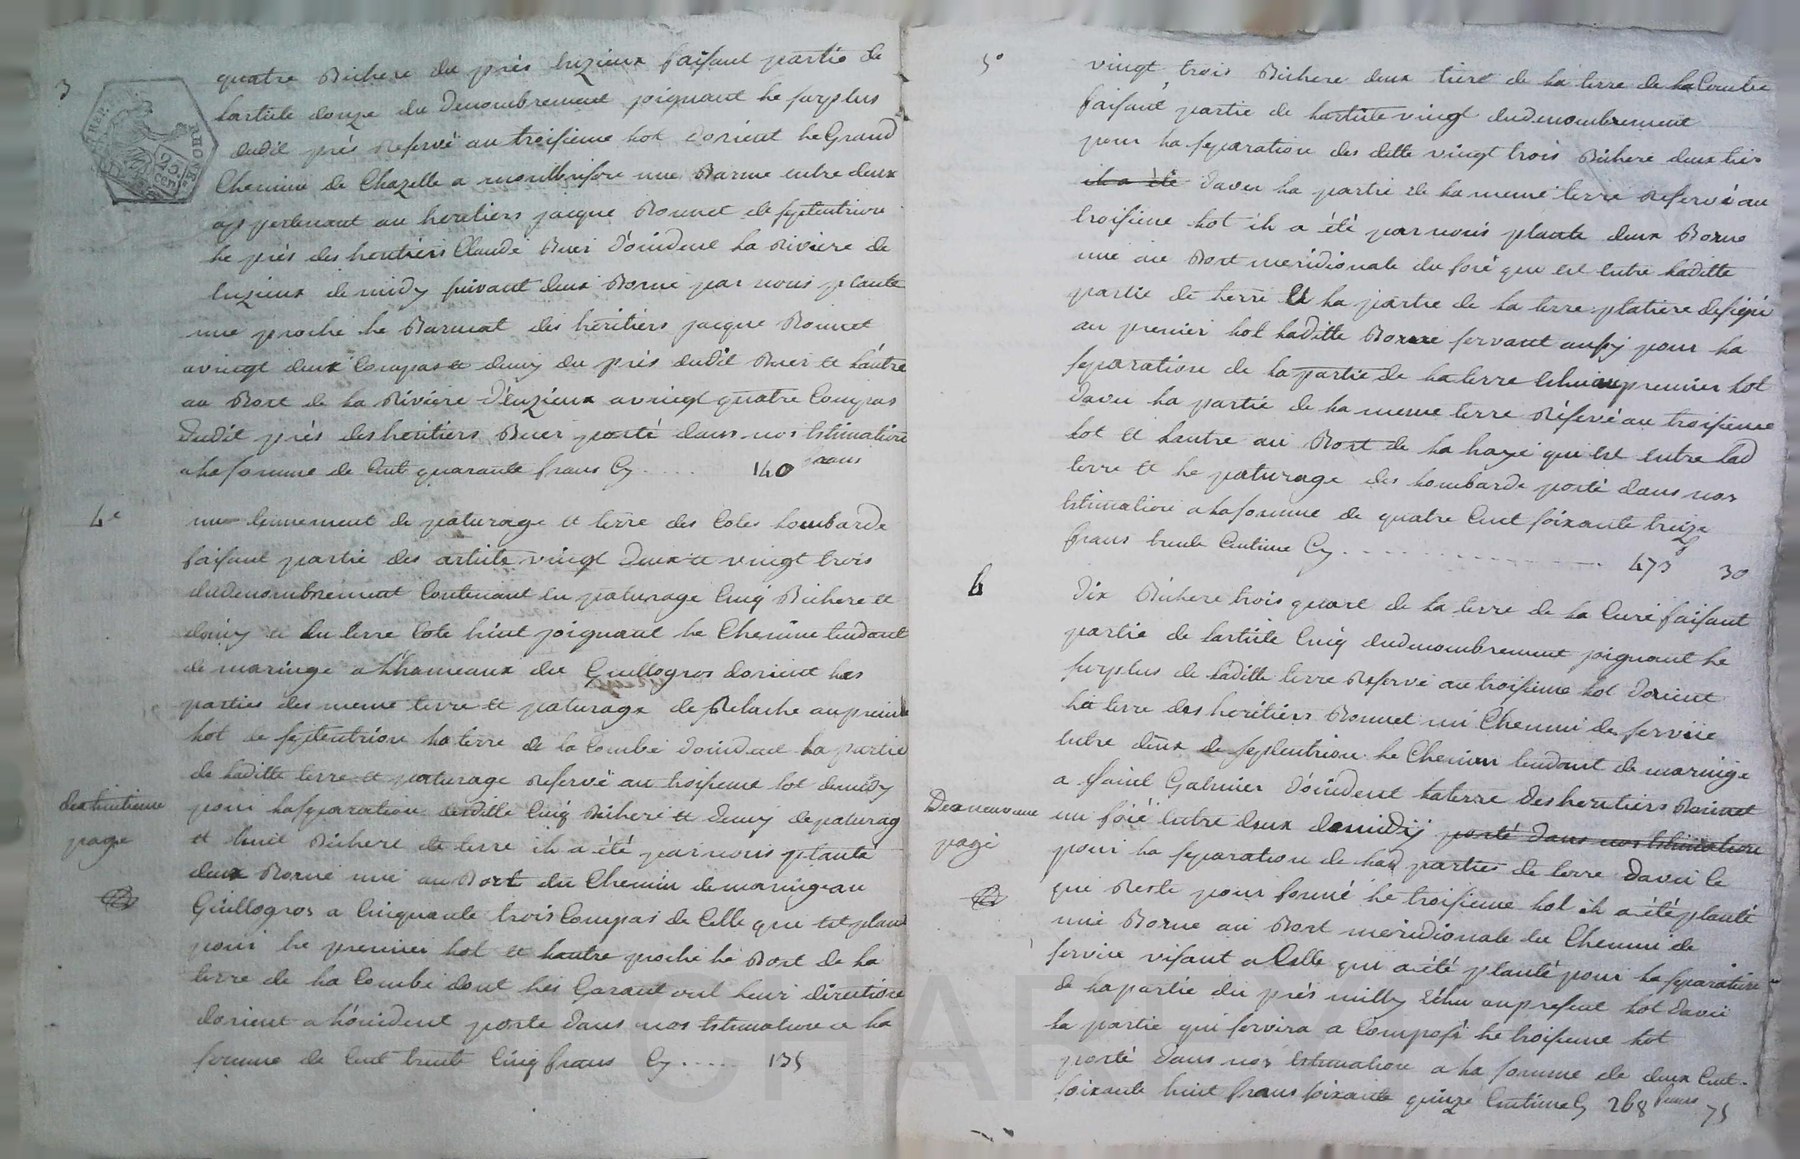 3
quatre Bichere du prés luzieux faisant partie de
larticle douze du denombrement joignant le surplus
dudit prés Reservé au troisieme lot dorient le Grand
Chemine de Chazelle a montbrison une Barme entre deux
appartenant au heretiers jacque Bonnet de septentrion
le prés des heritiers Claude Buer d'occident la Riviere de
luzieux de midy suivant deux Borne par nous plante
une proche le Barmat des héritiers jacque Bonnet
avingt deux Compas et demy du prés dudit Buer et lautre
au Bort de la Riviere D'euzieux avingt quatre Compas
dudit prés des heritiers Buer porté dans nos Estimations
a la somme de Cent quarante frans Cy .... 140 frans
4e
une tennement de paturage et terre des Cotes Lombarde
faisant partie des article vingt Deux et vingt trois
dudenombrement Contenant en paturage Cinq Bichere et
demy et du terre Cote huit joignant le Chemine tendant
de maringe a Lhameaux du Guillogros dorient les
parties des meme terre et paturage de Relache au premier
lot de septentrion la terre de la Combe doccident la partie
de laditte terre et paturage Reservé au troisieme lot demidy
pour la separation desditte Cinq Bichere et demy de paturag
et huit Bichere de terre il a été par nous planté
deux Borne une au Bort du Chemin de maringe au
Guillogros a Cinquante trois Compas de Celle qui est planté
pour le premier lot et lautre proche le Bort de la
terre de la Combe dont les Garant ont leur direction
dorient a lóccident porte dans nos Estimation a la
somme de Cent trente Cinq frans Cy ..... 135
dexhuitieme
page
5o
vingt trois Bichere deux tiers de la terre de la Combe
faisant partie de larticle vingt dudenombrement
pour la separation des ditte vingt trois Bichere deux tiers
il a été davec la partie de la meme terre Reservé au
troisieme lot il a été par nous plante deux Borne
une au Bort meridionale du fosé que est entre laditte
partie de terre Et la partie de la terre platiere designé
au premier lot laditte Borne servant aussy pour la
separation de la partie de la terre Echu au premier lot
davec la partie de la meme terre Réservé au troisieme
lot et lautre au Bort de la haye qui est entre lad
terre et le paturage des Lombarde porté dans nos
Estimation a la somme de quatre Cent soixante treize
frans trente Centime Cy ............ 473 30
6
Dix Bichere trois quart de la terre de la Cure faisant
partie de larticle Cinq dudenombrement joignant le
surplus de laditte terre Reservé au troisieme lot dorient
la terre des heretiers Bonnet un Chemin de service
entre deux de septentrion le Chemin tendant de maringe
a Saint Galmier d'occident la terre des heretiers Bonnet
un fosé entre deux demidy porté dans nos Estimation
pour la separation de las parties de terre davec le
qui Reste pour formé le troisieme lot il a été planté
une Borne au Bort meridionale du Chemin de
service visant a Celle qui a été planté pour la separation
de la partie du prés milly Echu au present lot davec
la partie qui servira a Composé le troisieme lot
porté dans nos Estimation a la somme de deux Cent
soixante huit frans soixante quinze Centime Cy 268 frans 75
Dexneuvieme
page